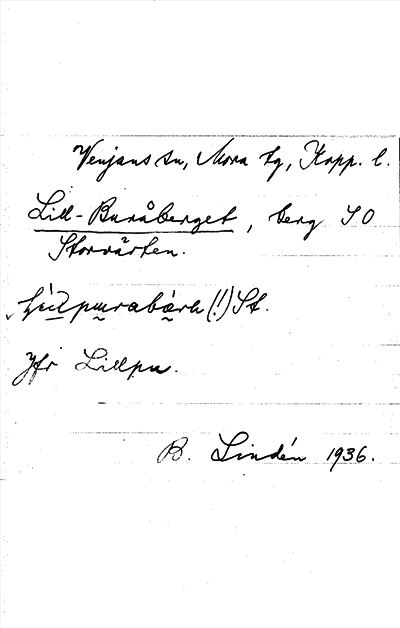 Venjans sn, Mora tg, Kopp. l.
Lill-Buråberget, berg SO
Storvarten.
(!) St.
Jfr Lillpu.
B. Lindén 1936.